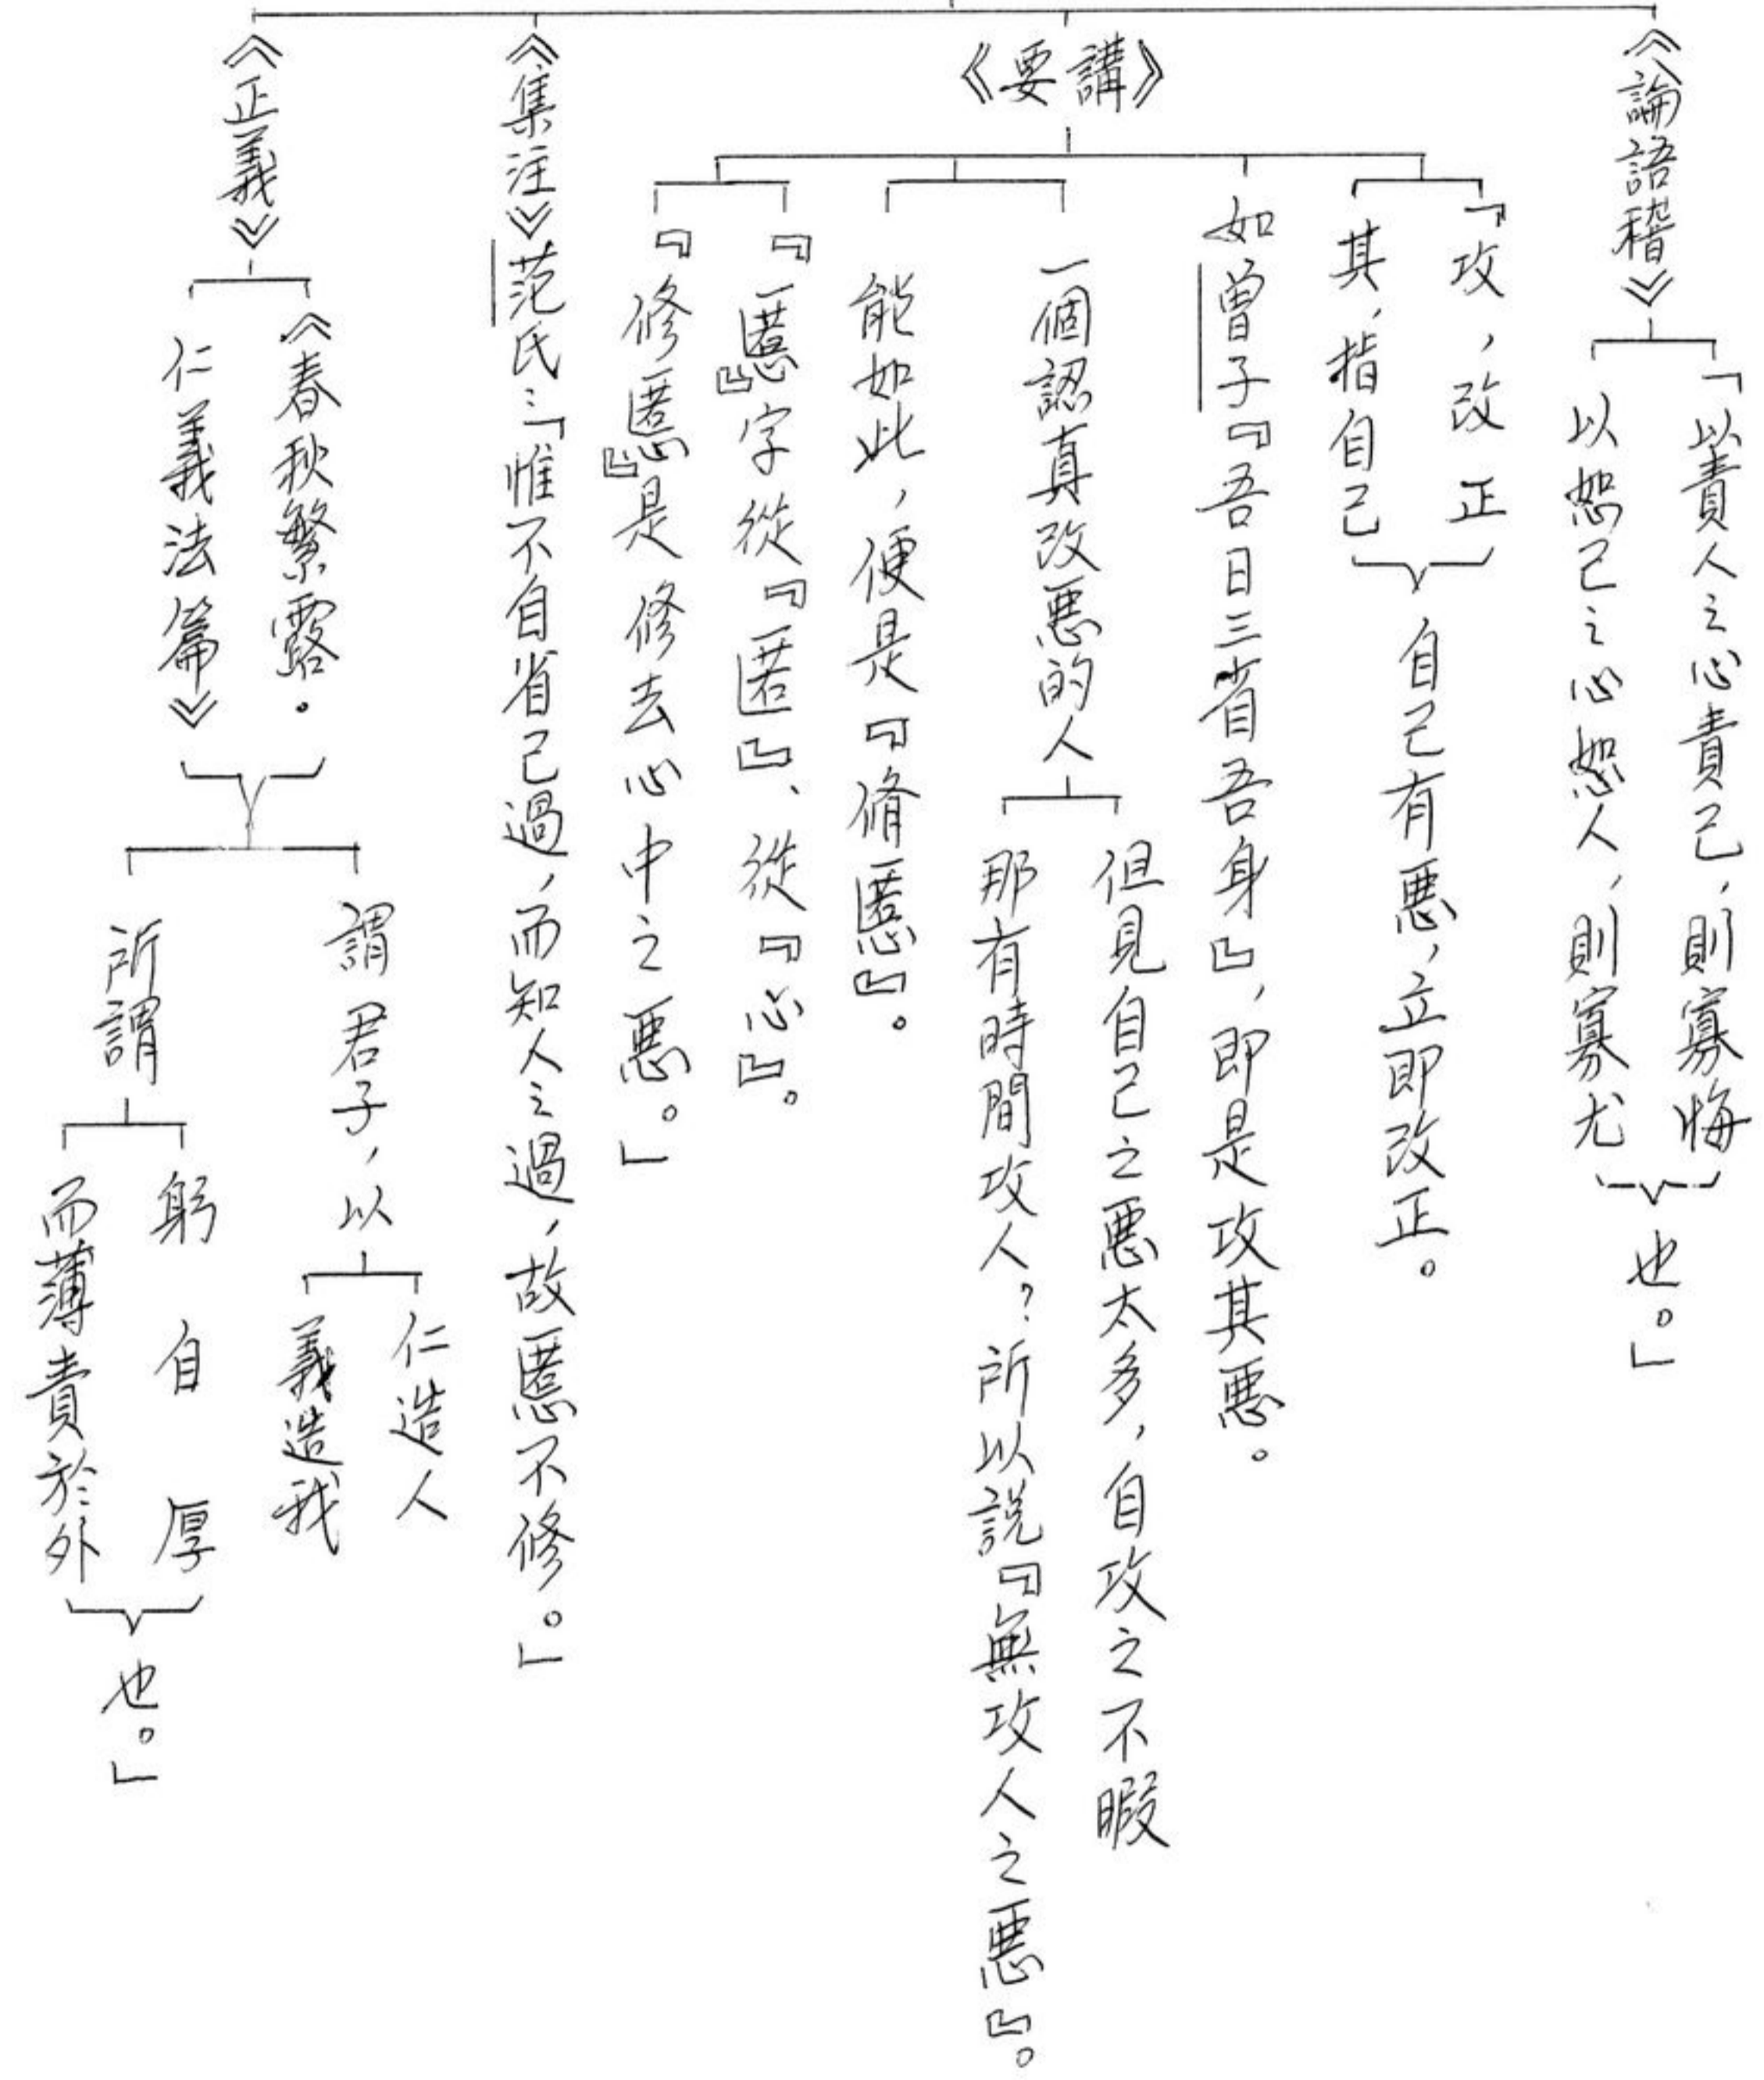 《論語稽》
「以責人之心責己，則寡悔
以恕己之心恕人，則寡尤
也。」
《要講》
「攻，改正
其，指自己
自己有惡，立即改正。
如曾子『吾日三省吾身』，即是攻其惡。
一個認真改惡的人
但見自己之惡太多，自攻之不暇
那有時間攻人？所以說『無攻人之惡』。
能如此，便是『脩慝』。
『慝』字從『匿』、從『心』。
『修慝』是修去心中之惡。」
《集注》范氏：「惟不自省己過，而知人之過，故慝不修。」
《正義》
《春秋繁露．
仁義法篇》
謂君子，以
仁造人
義造我
所謂
躬自厚
而薄責於外
也。」